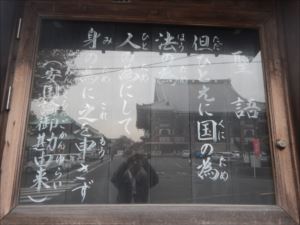 聖語
但ひとえに国の為
法の為
人の為にして
身の為に之を申さず
(安国論御勘由来)